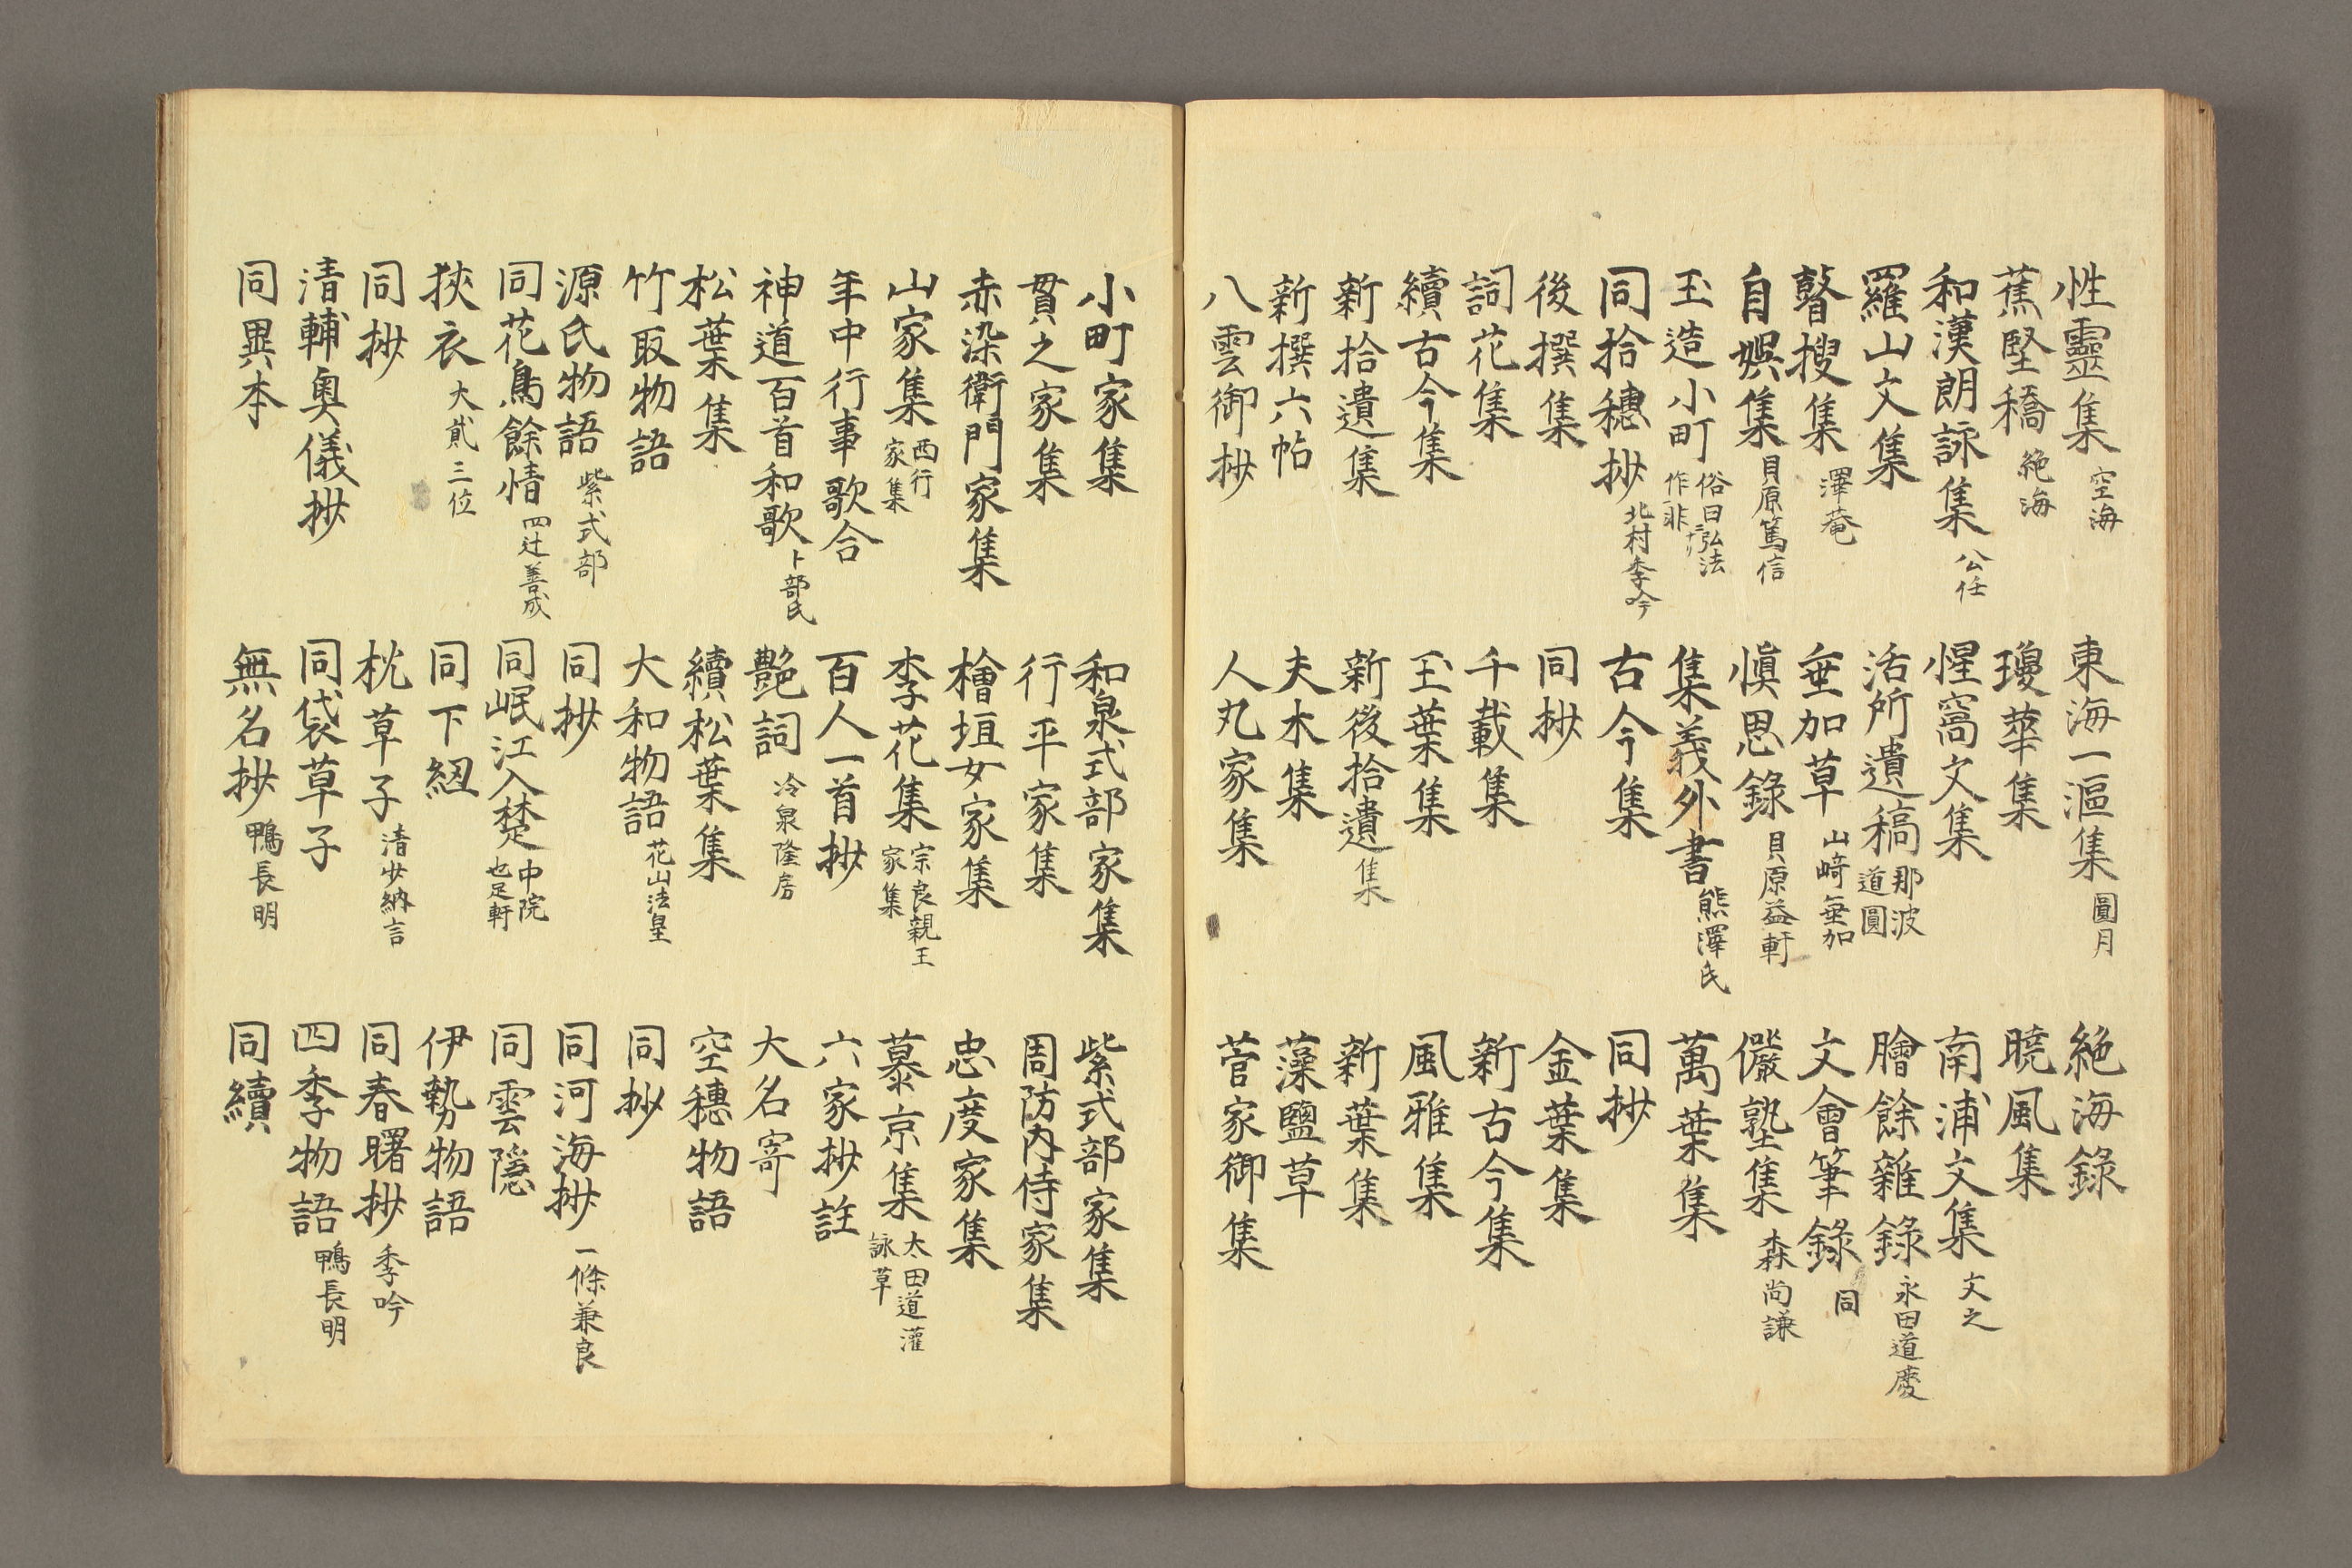 性靈集 空海 東海一漚集 圓月 絶海錄
蕉堅穚 絶海 瓊華集 曉風集
和漢朗詠集 公任 惺窩文集 南浦文集 文之
羅山文集 活所遺稿 那波道圓 膾餘雜錄 永田道慶
聱捜集 澤菴 垂加草 山﨑垂加 文會筆錄 同
自娯集 貝原篤信 愼思錄 貝原益軒 儼塾集 森尚謙
玉造小町 俗曰弘法作非 集義外書 熊澤氏 萬葉集
同拾穗抄 北村季吟 古今集 同抄
後撰集 同抄 金葉集
詞花集 千載集 新古今集
續古今集 玉葉集 風雅集
新拾遺集 新後拾遺集 新葉集
新撰六帖 夫木集 藻鹽草
八雲御抄 人丸家集 菅家御集
小町家集 和泉式部家集 紫式部家集
貫之家集 行平家集 周防内侍家集
赤染衛門家集 檜垣女家集 忠度家集
山家集 西行家集 李花集 宗良親王家集 慕京集 太田道灌詠草
年中行事歌合 百人一首抄 六家抄註
神道百首和歌 卜部氏 艶詞 冷泉隆房 大名寄
松葉集 續松葉集 空穗物語
竹取物語 大和物語 花山法皇 同抄
源氏物語 紫式部 同抄 同河海抄 一條兼良
同花鳥餘情 四辻善成 同岷江入楚 中院也足軒 同雲隱
狹衣 大貳三位 同下紐 伊勢物語
同抄 枕草子 清少納言 同春曙抄 季吟
清輔奧儀抄 同袋草子 四季物語 鴨長明
同異本 無名抄 鴨長明 同續